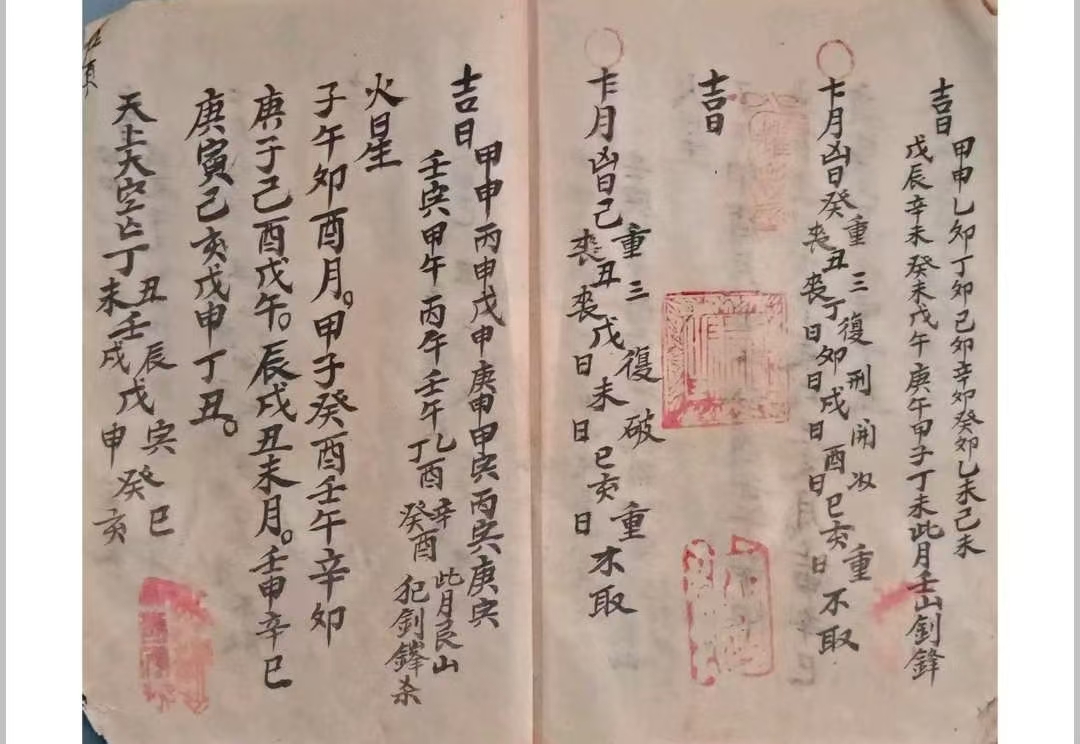 吉日 甲申乙卯丁卯己卯辛卯癸卯乙未己未
戊辰辛未癸未戊午庚午甲子丁未此月壬山钊鋒
重三復刑開収重
卡月凶日癸丑丁卯戌酉巳亥不取
丧丧日日日日日
吉日
重三復破重
卡月凶日己丑戊未巳亥不取
丧丧日日日
吉日 甲申丙申戊申庚申甲寅丙寅庚寅
壬寅甲午丙午壬午乙酉丁酉辛酉癸酉此月艮山犯钊鋒杀
火星
子午卯酉月。甲子癸酉壬午辛卯
庚子己酉戊午。辰戌丑未月。壬申辛巳
庚寅己亥戊申丁丑。
天上大空亡丁丑未壬辰戌戊寅申癸巳亥